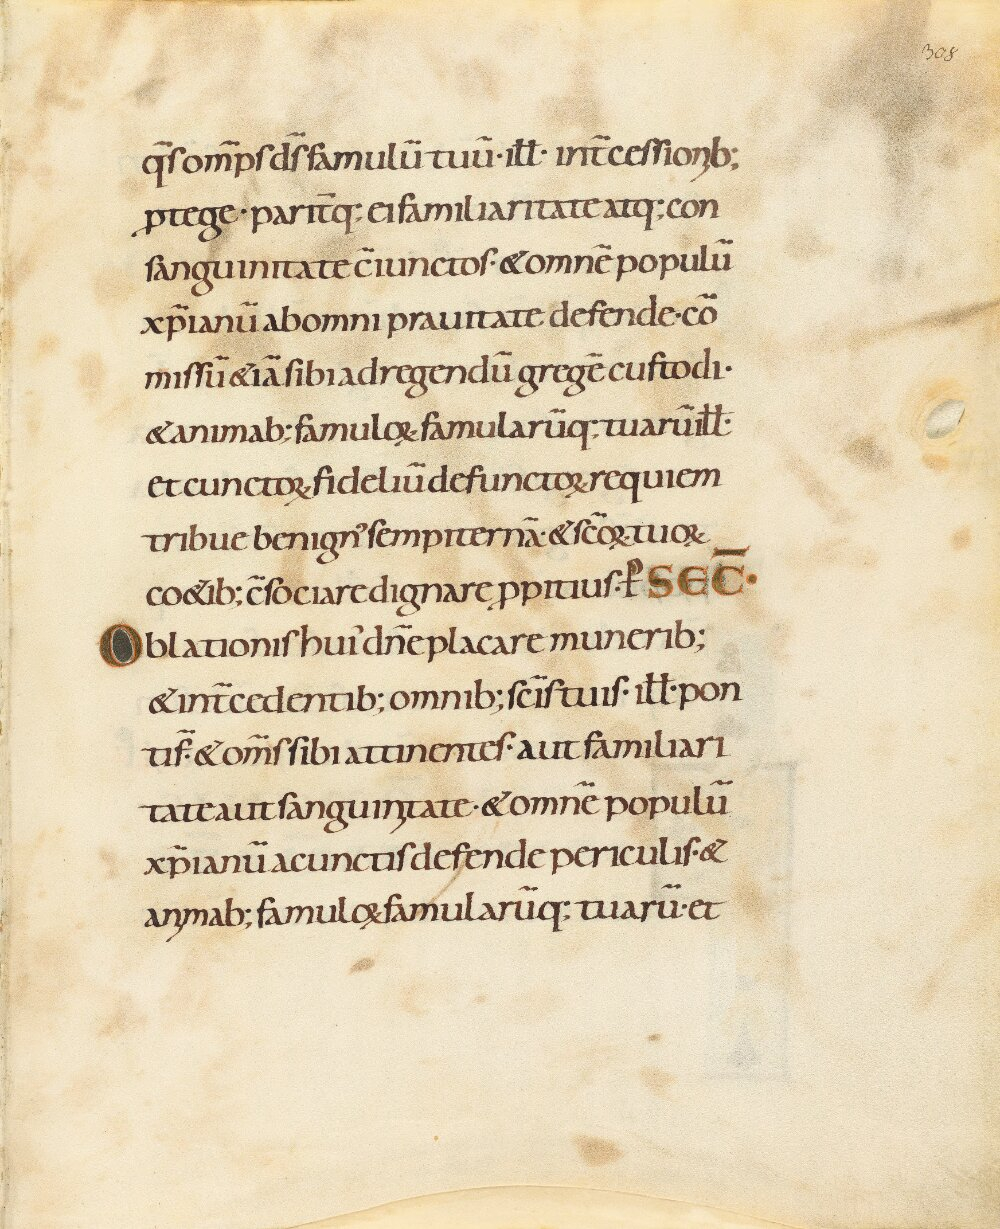 308
q̄s om̄ps d̄s famulū tuū· ill̄· int̄cessionb;
ꝓtege· parit̄q; ei familiaritate atq; con
sanguinitate c̄iunctos· & omnē populū
xp̄ianū ab omni prauitate defende· cō
missū & iā sibi ad regendū gregē custodi·
& animab; famuloꝝ famularūq; tuarū ill̄·
et cunctoꝝ fideliū defunctoꝝ requiem
tribue benignꝰ sempiternā· & sc̄oꝝ tuoꝝ
co&ib; c̄sociare dignare ꝓpitius· p̄ SEC̄·
Oblationis huiꝰ dn̄e placare munerib;
& int̄cedentib; omnib; sc̄is tuis· ill̄· pon
tif̄· & om̄s sibi attinentes· aut familiari
tate aut sanguinitate· & omnē populū
xp̄ianū a cunctis defende periculis· &
animab; famuloꝝ famularūq; tuarū· et